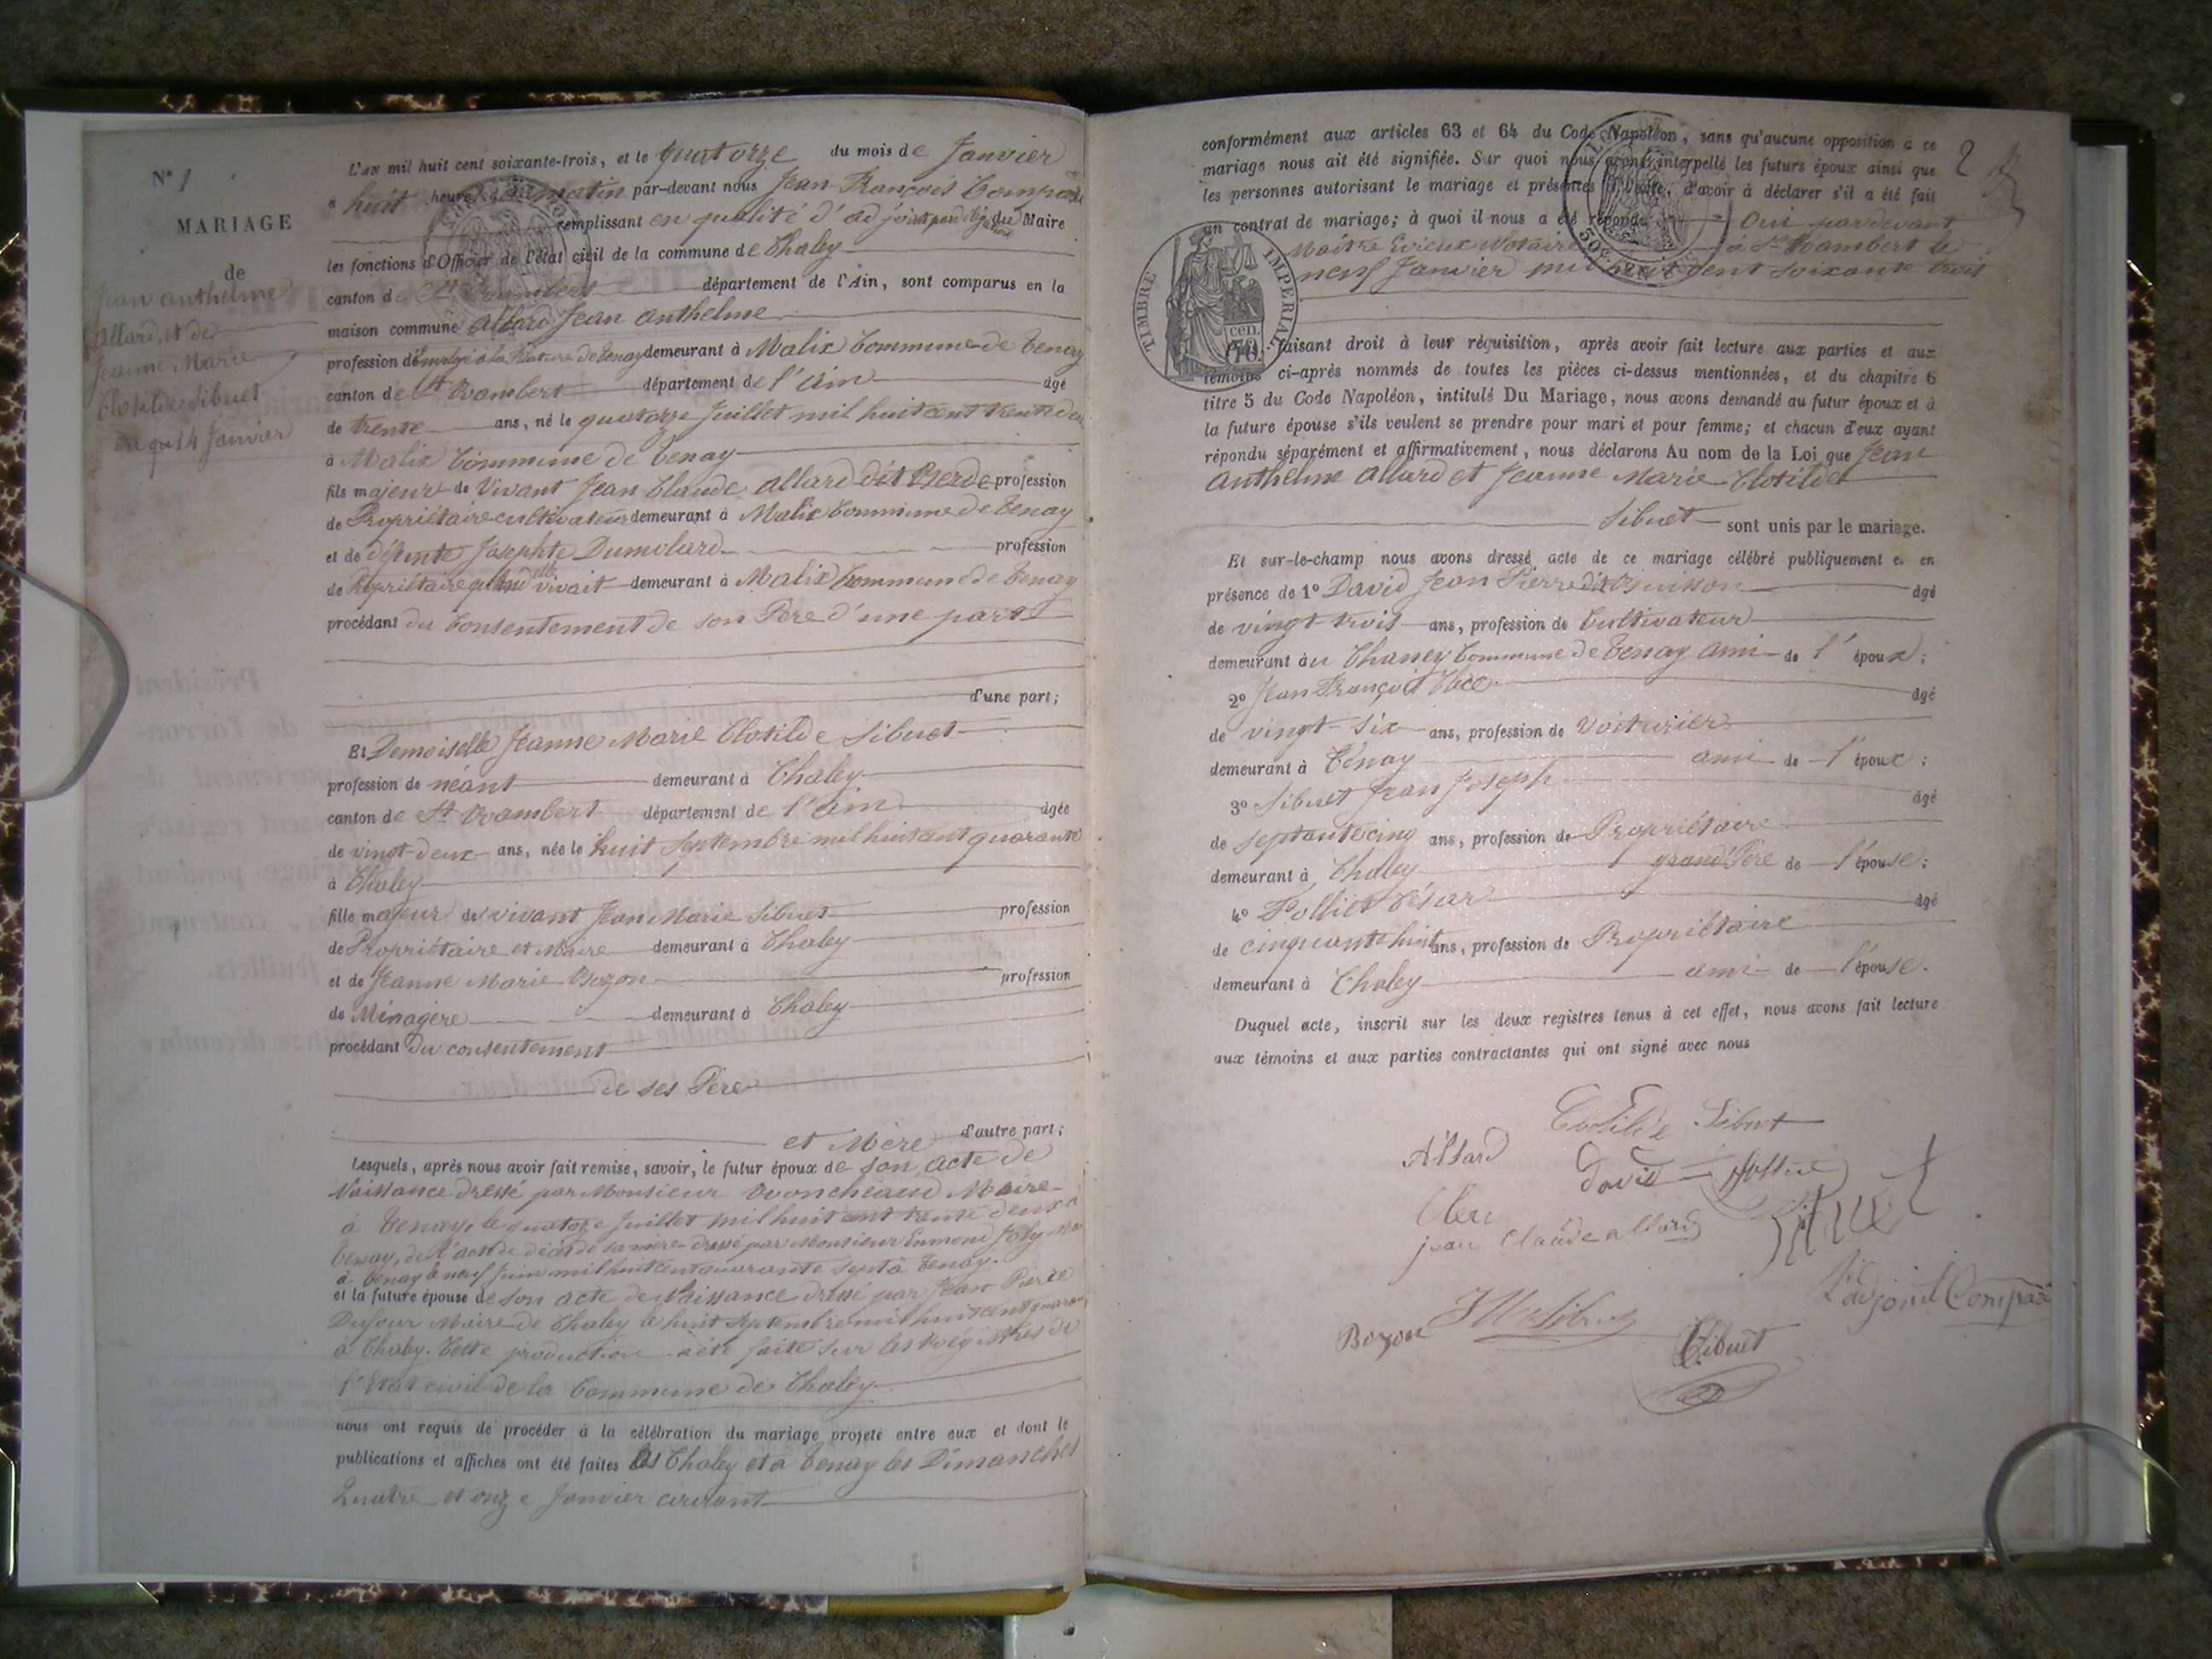 N° 1
MARIAGE
de
Jean Anthelme
Allard, et de
Jeanne Marie
Clotilde Sibuet
du 14 Janvier
L'AN mil huit cent soixante-trois, et le quatorze du mois de Janvier
à huit heures du matin par-devant nous Jean François Compas
remplissant en qualité d'adjoint par délégation du Maire
les fonctions d'Officier de l'état civil de la commune de Chaley
canton de St Rambert département de l'Ain, sont comparus en la
maison commune Allard Jean Anthelme
profession d'Employé à la filature de Tenay demeurant à Malix Commune de Tenay
canton de St Rambert département de l'Ain âgé
de trente ans, né le quatorze Juillet mil huit cent trente deux
à Malix Commune de Tenay
fils majeur de Vivant Jean Claude Allard dit Berde profession
de Propriétaire cultivateur demeurant à Malix Commune de Tenay
et de défunte Josephte Dumolard profession
de Propriétaire quand elle vivait demeurant à Malix Commune de Tenay
procédant du Consentement de son Père d'une part
d'une part;
Et Demoiselle Jeanne Marie Clotilde Sibuet
profession de néant demeurant à Chaley
canton de St Rambert département de l'Ain âgée
de vingt-deux ans, née le huit Septembre mil huit cent quarante
à Chaley
fille majeur de vivant Jean Marie Sibuet profession
de Propriétaire et Maire demeurant à Chaley
et de Jeanne Marie Bozon profession
de Ménagère demeurant à Chaley
procédant Du consentement
de ses Père
et Mère d'autre part;
Lesquels, après nous avoir fait remise, savoir, le futur époux de son acte de
Naissance dressé par Monsieur Maire
à Tenay, le quatorze Juillet mil huit cent trente deux à
Tenay, de l'acte de décès de sa mère dressé par Monsieur Enmond Joly
à Tenay le neuf Juin mil huit cent quarante sept à Tenay.
et la future épouse de son acte de Naissance dressé par Jean Pierre
Dufour Maire de Chaley le huit Septembre mil huit cent quarante
à Chaley. Cette production a été faite sur les Régistres de
l'Etat civil de la Commune de Chaley.
nous ont requis de procéder à la célébration du mariage projeté entre eux et dont le
publications et affiches ont été faites à Chaley et à Tenay les Dimanches
Quatre et onze Janvier courant
2
conformément aux articles 63 et 64 du Code Napoléon, sans qu'aucune opposition à ce
mariage nous ait été signifiée. Sur quoi nous avons interpellé les futurs époux ainsi que
les personnes autorisant le mariage et présentes à l'acte, d'avoir à déclarer s'il a été fait
un contrat de mariage; à quoi il nous a été répondu Oui pardevant
Maître Notaire à St Rambert le
neuf Janvier mil huit cent soixante trois
TIMBRE IMPERIAL
50 CEN.
faisant droit à leur réquisition, après avoir fait lecture aux parties et aux
témoins ci-après nommés de toutes les pièces ci-dessus mentionnées, et du chapitre 6
titre 5 du Code Napoléon, intitulé Du Mariage, nous avons demandé au futur époux et à
la future épouse s'ils veulent se prendre pour mari et pour femme; et chacun d'eux ayant
répondu séparément et affirmativement, nous déclarons Au nom de la Loi que Jean
Anthelme Allard et Jeanne Marie Clotilde
Sibuet sont unis par le mariage.
Et sur-le-champ nous avons dressé acte de ce mariage célébré publiquement et en
présence de 1° David Jean Pierre dit Buisson âgé
de vingt trois ans, profession de Cultivateur
demeurant au Chaney Commune de Tenay ami de l'époux;
2° Jean François âgé
de vingt-six ans, profession de Voiturier
demeurant à Tenay ami de l'époux;
3° Sibuet Jean Joseph âgé
de septante cinq ans, profession de Propriétaire
demeurant à Chaley grand Père de l'épouse;
4° Pollier César âgé
de cinquante huit ans, profession de Propriétaire
demeurant à Chaley ami de l'épouse.
Duquel acte, inscrit sur les deux registres tenus à cet effet, nous avons fait lecture
aux témoins et aux parties contractantes qui ont signé avec nous
Clotilde Sibuet
Allard
David
Clerc
jean Claude allard
L'adjoint Compas
Bozon
Sibuet